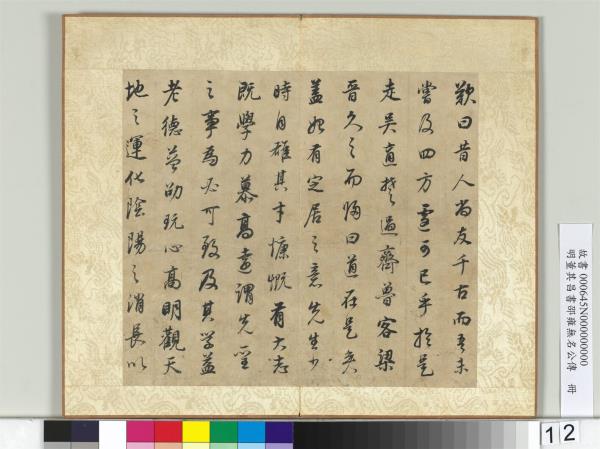 歎曰昔人尚友千古而吾未
嘗及四方遽可已乎於是
走吳適楚過齊魯客梁
晉久之而歸曰道在是矣
蓋始有定居之意先生少
時自雄其才慷慨有大志
既學力慕高遠謂先王
之事為必可致及其學益
老德益邵玩心高明觀天
地之運化陰陽之消長以
故書000645N000000000
明董其昌書邵雍無名公傳 冊
12